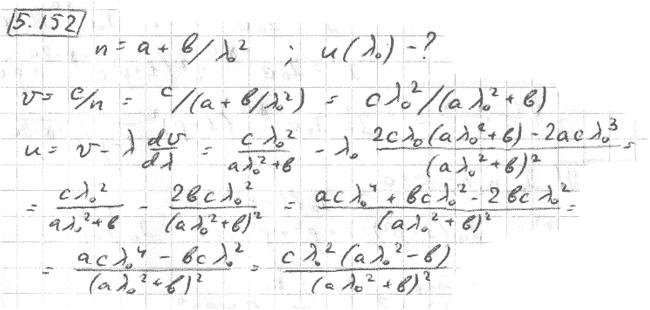 5.152
n = a + в/λ₀² ; u(λ₀) - ?
v = c/n = c/(a + в/λ₀²) = cλ₀²/(aλ₀² + в)
u = v - λ dv/dλ = cλ₀²/(aλ₀² + в) - λ₀ (2cλ₀(aλ₀² + в) - 2acλ₀³)/(aλ₀² + в)² =
= cλ₀²/(aλ₀² + в) - 2вcλ₀²/(aλ₀² + в)² = (acλ₀⁴ + вcλ₀² - 2вcλ₀²)/(aλ₀² + в)² =
= (acλ₀⁴ - вcλ₀²)/(aλ₀² + в)² = cλ₀²(aλ₀² - в)/(aλ₀² + в)²